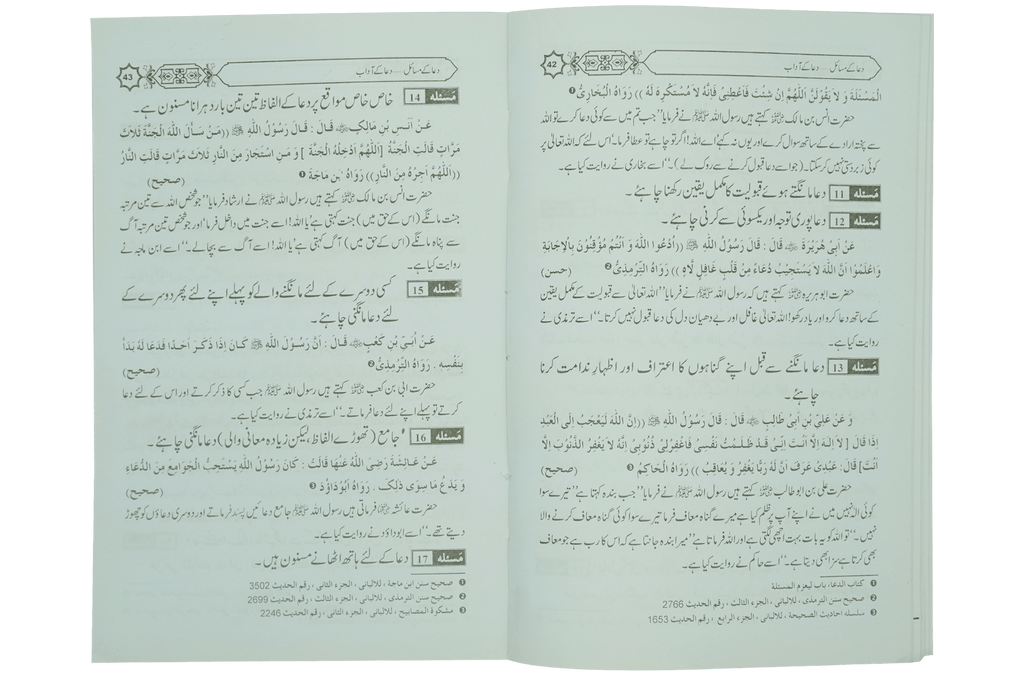 42
دعا کے مسائل ..... دعا کے آداب
الْمَسْئَلَةَ وَ لاَ يَقُوْلَنَّ اَللّٰهُمَّ اِنْ شِئْتَ فَاَعْطِنِيْ فَاِنَّهُ لاَ مُسْتَكْرِهَ لَهُ )) رَوَاهُ الْبُخَارِيُّ ❶
حضرت انس بن مالک رضی اللہ عنہ کہتے ہیں رسول اللہ ﷺ نے فرمایا ’’جب تم میں سے کوئی دعا کرے تو اللہ
سے پختہ ارادے کے ساتھ سوال کرے اور یوں نہ کہے ’اے اللہ! اگر تو چاہے تو عطا فرما۔‘ اس لئے کہ اللہ تعالیٰ پر
کوئی زبردستی نہیں کرسکتا۔ (جو اسے دعا قبول کرنے سے روک لے)۔‘‘ اسے بخاری نے روایت کیا ہے۔
مَسئله 11 دعا مانگتے ہوئے قبولیت کا مکمل یقین رکھنا چاہئے۔
مَسئله 12 دعا پوری توجہ اور یکسوئی سے کرنی چاہئے۔
عَنْ اَبِيْ هُرَيْرَةَ رضی اللہ عنہ قَالَ : قَالَ رَسُوْلُ اللهِ ﷺ ((اُدْعُوا اللهَ وَ اَنْتُمْ مُؤْقِنُوْنَ بِالْاِجَابَةِ
وَاعْلَمُوْا اَنَّ اللهَ لاَ يَسْتَجِيْبُ دُعَاءً مِنْ قَلْبٍ غَافِلٍ لاَهٍ )) رَوَاهُ التِّرْمِذِيُّ ❷ (حسن)
حضرت ابو ہریرہ رضی اللہ عنہ کہتے ہیں کہ رسول اللہ ﷺ نے فرمایا ’’اللہ تعالیٰ سے قبولیت کے مکمل یقین
کے ساتھ دعا کرو اور یاد رکھو! اللہ تعالیٰ غافل اور بے دھیان دل کی دعا قبول نہیں کرتا۔‘‘ اسے ترمذی نے
روایت کیا ہے۔
مَسئله 13 دعا مانگنے سے قبل اپنے گناہوں کا اعتراف اور اظہارِ ندامت کرنا
چاہئے۔
وَ عَنْ عَلِيِّ بْنِ اَبِيْ طَالِبٍ رضی اللہ عنہ قَالَ : قَالَ رَسُوْلُ اللهِ ﷺ ((اِنَّ اللهَ لَيَعْجَبُ اِلَى الْعَبْدِ
اِذَا قَالَ [ لاَ اِلٰهَ اِلاَّ اَنْتَ اِنِّيْ قَدْ ظَلَمْتُ نَفْسِيْ فَاغْفِرْلِيْ ذُنُوْبِيْ اِنَّهُ لاَ يَغْفِرُ الذُّنُوْبَ اِلاَّ
اَنْتَ] قَالَ: عَبْدِيْ عَرَفَ اَنَّ لَهُ رَبًّا يَغْفِرُ وَ يُعَاقِبُ )) رَوَاهُ الْحَاكِمُ ❸ (صحيح)
حضرت علی بن ابو طالب رضی اللہ عنہ کہتے ہیں رسول اللہ ﷺ نے فرمایا ’’جب بندہ کہتا ہے ’’تیرے سوا
کوئی الٰہ نہیں میں نے اپنے آپ پر ظلم کیا ہے میرے گناہ معاف فرما تیرے سوا کوئی گناہ معاف کرنے والا
نہیں۔‘‘ تو اللہ کو یہ بات بہت اچھی لگتی ہے اور اللہ فرماتا ہے ’’میرا بندہ جانتا ہے کہ اس کا رب ہے جو معاف
بھی کرتا ہے سزا بھی دیتا ہے۔‘‘ اسے حاکم نے روایت کیا ہے۔
❶ كتاب الدعاء، باب ليعزم المسئلة
❷ صحيح سنن الترمذى، للالبانى، الجزء الثالث ، رقم الحديث 2766
❸ سلسله احاديث الصحيحة ، للالبانى، الجزء الرابع ، رقم الحديث 1653
43
دعا کے مسائل ..... دعا کے آداب
مَسئله 14 خاص خاص مواقع پر دعا کے الفاظ تین تین بار دہرانا مسنون ہے۔
عَنْ اَنَسِ بْنِ مَالِكٍ رضی اللہ عنہ قَالَ : قَالَ رَسُوْلُ اللهِ ﷺ ((مَنْ سَأَلَ اللهَ الْجَنَّةَ ثَلاَثَ
مَرَّاتٍ قَالَتِ الْجَنَّةُ [اَللّٰهُمَّ اَدْخِلْهُ الْجَنَّةَ ] وَ مَنِ اسْتَجَارَ مِنَ النَّارِ ثَلاَثَ مَرَّاتٍ قَالَتِ النَّارُ
((اَللّٰهُمَّ اَجِرْهُ مِنَ النَّارِ)) رَوَاهُ ابْنُ مَاجَةَ ❶ (صحيح)
حضرت انس بن مالک رضی اللہ عنہ کہتے ہیں رسول اللہ ﷺ نے ارشاد فرمایا ’’جو شخص اللہ سے تین مرتبہ
جنت مانگے (اس کے حق میں) جنت کہتی ہے ’یا اللہ! اسے جنت میں داخل فرما‘ اور جو شخص تین مرتبہ آگ
سے پناہ مانگے (اس کے حق میں) آگ کہتی ہے ’یا اللہ! اسے آگ سے بچالے۔‘‘ اسے ابن ماجہ نے
روایت کیا ہے۔
مَسئله 15 کسی دوسرے کے لئے مانگنے والے کو پہلے اپنے لئے پھر دوسرے کے
لئے دعا مانگنی چاہئے۔
عَنْ اُبَيِّ بْنِ كَعْبٍ رضی اللہ عنہ قَالَ : اَنَّ رَسُوْلَ اللهِ ﷺ كَانَ اِذَا ذَكَرَ اَحَدًا فَدَعَا لَهُ بَدَأَ
بِنَفْسِهِ . رَوَاهُ التِّرْمِذِيُّ ❷ (صحيح)
حضرت ابی بن کعب رضی اللہ عنہ کہتے ہیں رسول اللہ ﷺ جب کسی کا ذکر کرتے اور اس کے لئے دعا
کرتے تو پہلے اپنے لئے دعا فرماتے۔‘‘ اسے ترمذی نے روایت کیا ہے۔
مَسئله 16 جامع (تھوڑے الفاظ، لیکن زیادہ معانی والی) دعا مانگنی چاہئے۔
عَنْ عَائِشَةَ رَضِيَ اللهُ عَنْهَا قَالَتْ : كَانَ رَسُوْلُ اللهِ يَسْتَحِبُّ الْجَوَامِعَ مِنَ الدُّعَاءِ
وَ يَدَعُ مَا سِوَى ذٰلِكَ . رَوَاهُ اَبُوْدَاوُدَ ❸ (صحيح)
حضرت عائشہ رضی اللہ عنہا فرماتی ہیں رسول اللہ ﷺ جامع دعائیں پسند فرماتے اور دوسری دعاؤں کو چھوڑ
دیتے تھے۔‘‘ اسے ابوداؤد نے روایت کیا ہے۔
مَسئله 17 دعا کے لئے ہاتھ اٹھانے مسنون ہیں۔
❶ صحيح سنن ابن ماجة ، للالبانى ، الجزء الثانى ، رقم الحديث 3502
❷ صحيح سنن الترمذى، للالبانى، الجزء الثالث ، رقم الحديث 2699
❸ مشكوة المصابيح ، للالبانى، الجزء الثانى ، رقم الحديث 2246